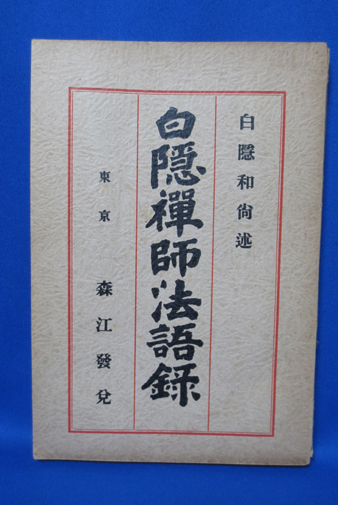 白隱和尙述
白隱禪師法語錄
東京 森江發兌